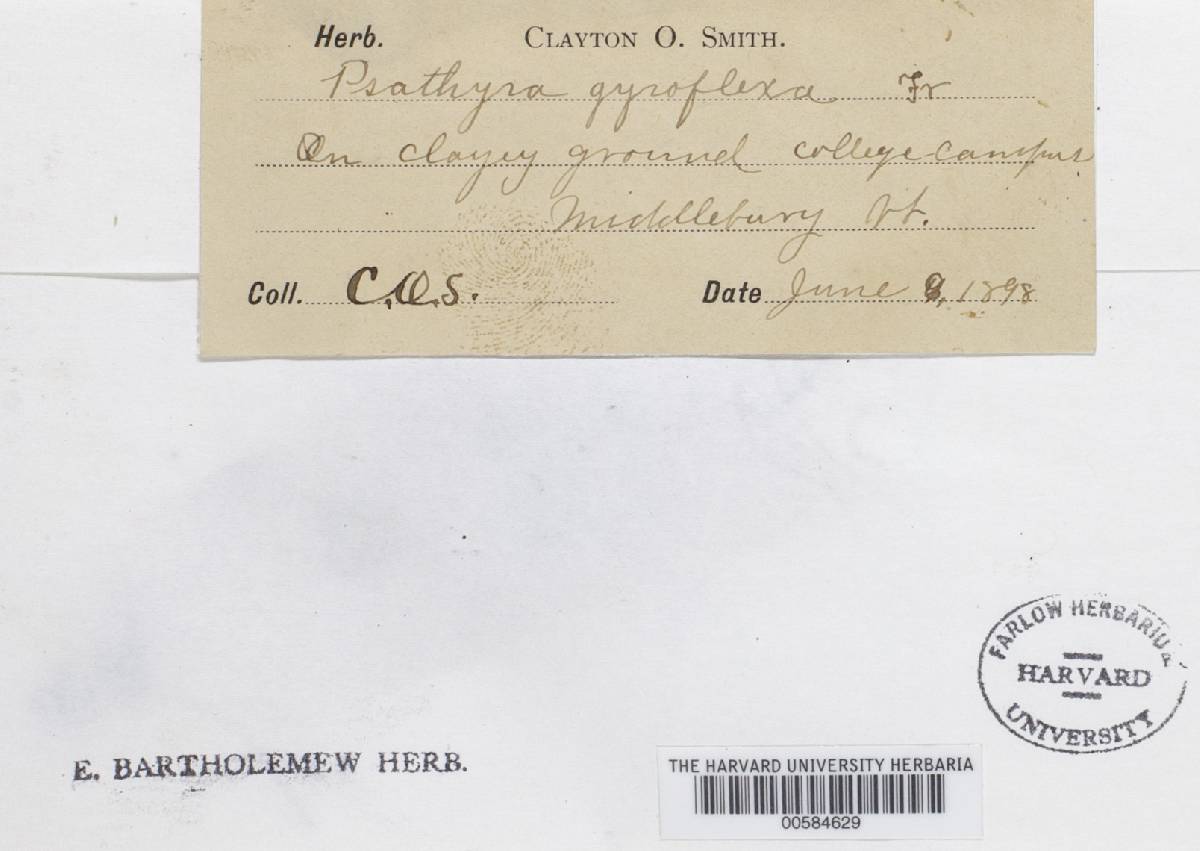 Herb. CLAYTON O. SMITH.
Psathyra gyroflexa Fr
On clayey ground college campus
Middlebury Vt.
Coll. C.O.S. Date June 8, 1898
FARLOW HERBARIUM
HARVARD
UNIVERSITY
E. BARTHOLEMEW HERB.
THE HARVARD UNIVERSITY HERBARIA
00584629